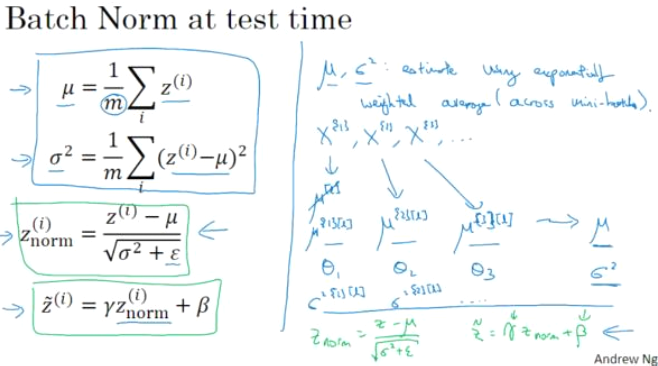 Batch Norm at test time
μ = 1/m ∑_i z^(i)
σ² = 1/m ∑_i (z^(i)−μ)²
z_norm^(i) = (z^(i) − μ)/√(σ² + ε)
z̃^(i) = γz_norm^(i) + β
μ, σ² : estimate using exponentially
weighted average (across mini-batches).
X^{1}, X^{2}, X^{3}, ...
μ^{1}[l] μ^{2}[l] μ^{3}[l] → μ
θ₁ θ₂ θ₃ σ²
σ^2{1}[l] σ^2{2}[l] ...
z_norm = (z − μ)/√(σ²+ε) z̃ = γ z_norm + β
Andrew Ng